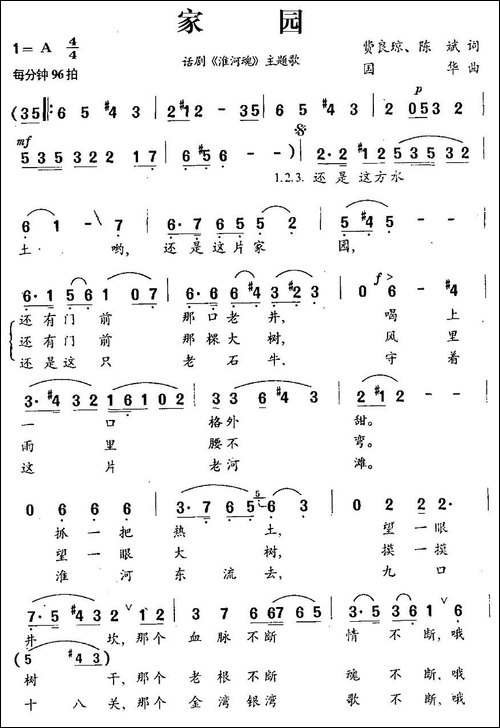 家 园
1=A 4/4
费良琼、陈 斌 词
话剧《淮河魂》主题歌
每分钟96拍
国 华 曲
p
(35|:6·5 #4 3|2 #1 2 - 35|6·5 #4 3|2 0 5 3 2
mf
535 322 2 17|6 #5 6 - -)|2·2 #122 535 32
1.2.3.还是这方水
6 1 - 7|6·7 655 2|5 #4 5 - -
土 哟, 还是这片家 园,
f>
6·1 56 1 07|2·6 26 #4 3 #23|0 6 #1 -
还有门前 那口老井, 喝上
还有门前 那棵大树, 风里
还是这只 老石牛, 守着
3·#4 32 161 02|3 3 #4 3 - |2 #1 2 - -
一 口 格外 甜。
雨 里 腰不 弯。
这 片 老河 滩。
0 6 6 6|3·7 65 5 6 3|0 2 2 2·
抓一把 热 土, 望一眼
望一眼 大 树, 摸一摸
淮 河 东流去, 九 口
7·5 #43 2 ∨ 12|7 65 6 67 65|3·5 36 1 ∨ 6
井 坎,那个 血 脉 不断 情 不 断,哦
(5 #4 3)
树 干,那个 老 根 不断 魂 不 断,哦
十 八 关,那个 金 湾 银湾 歌 不 断,哦